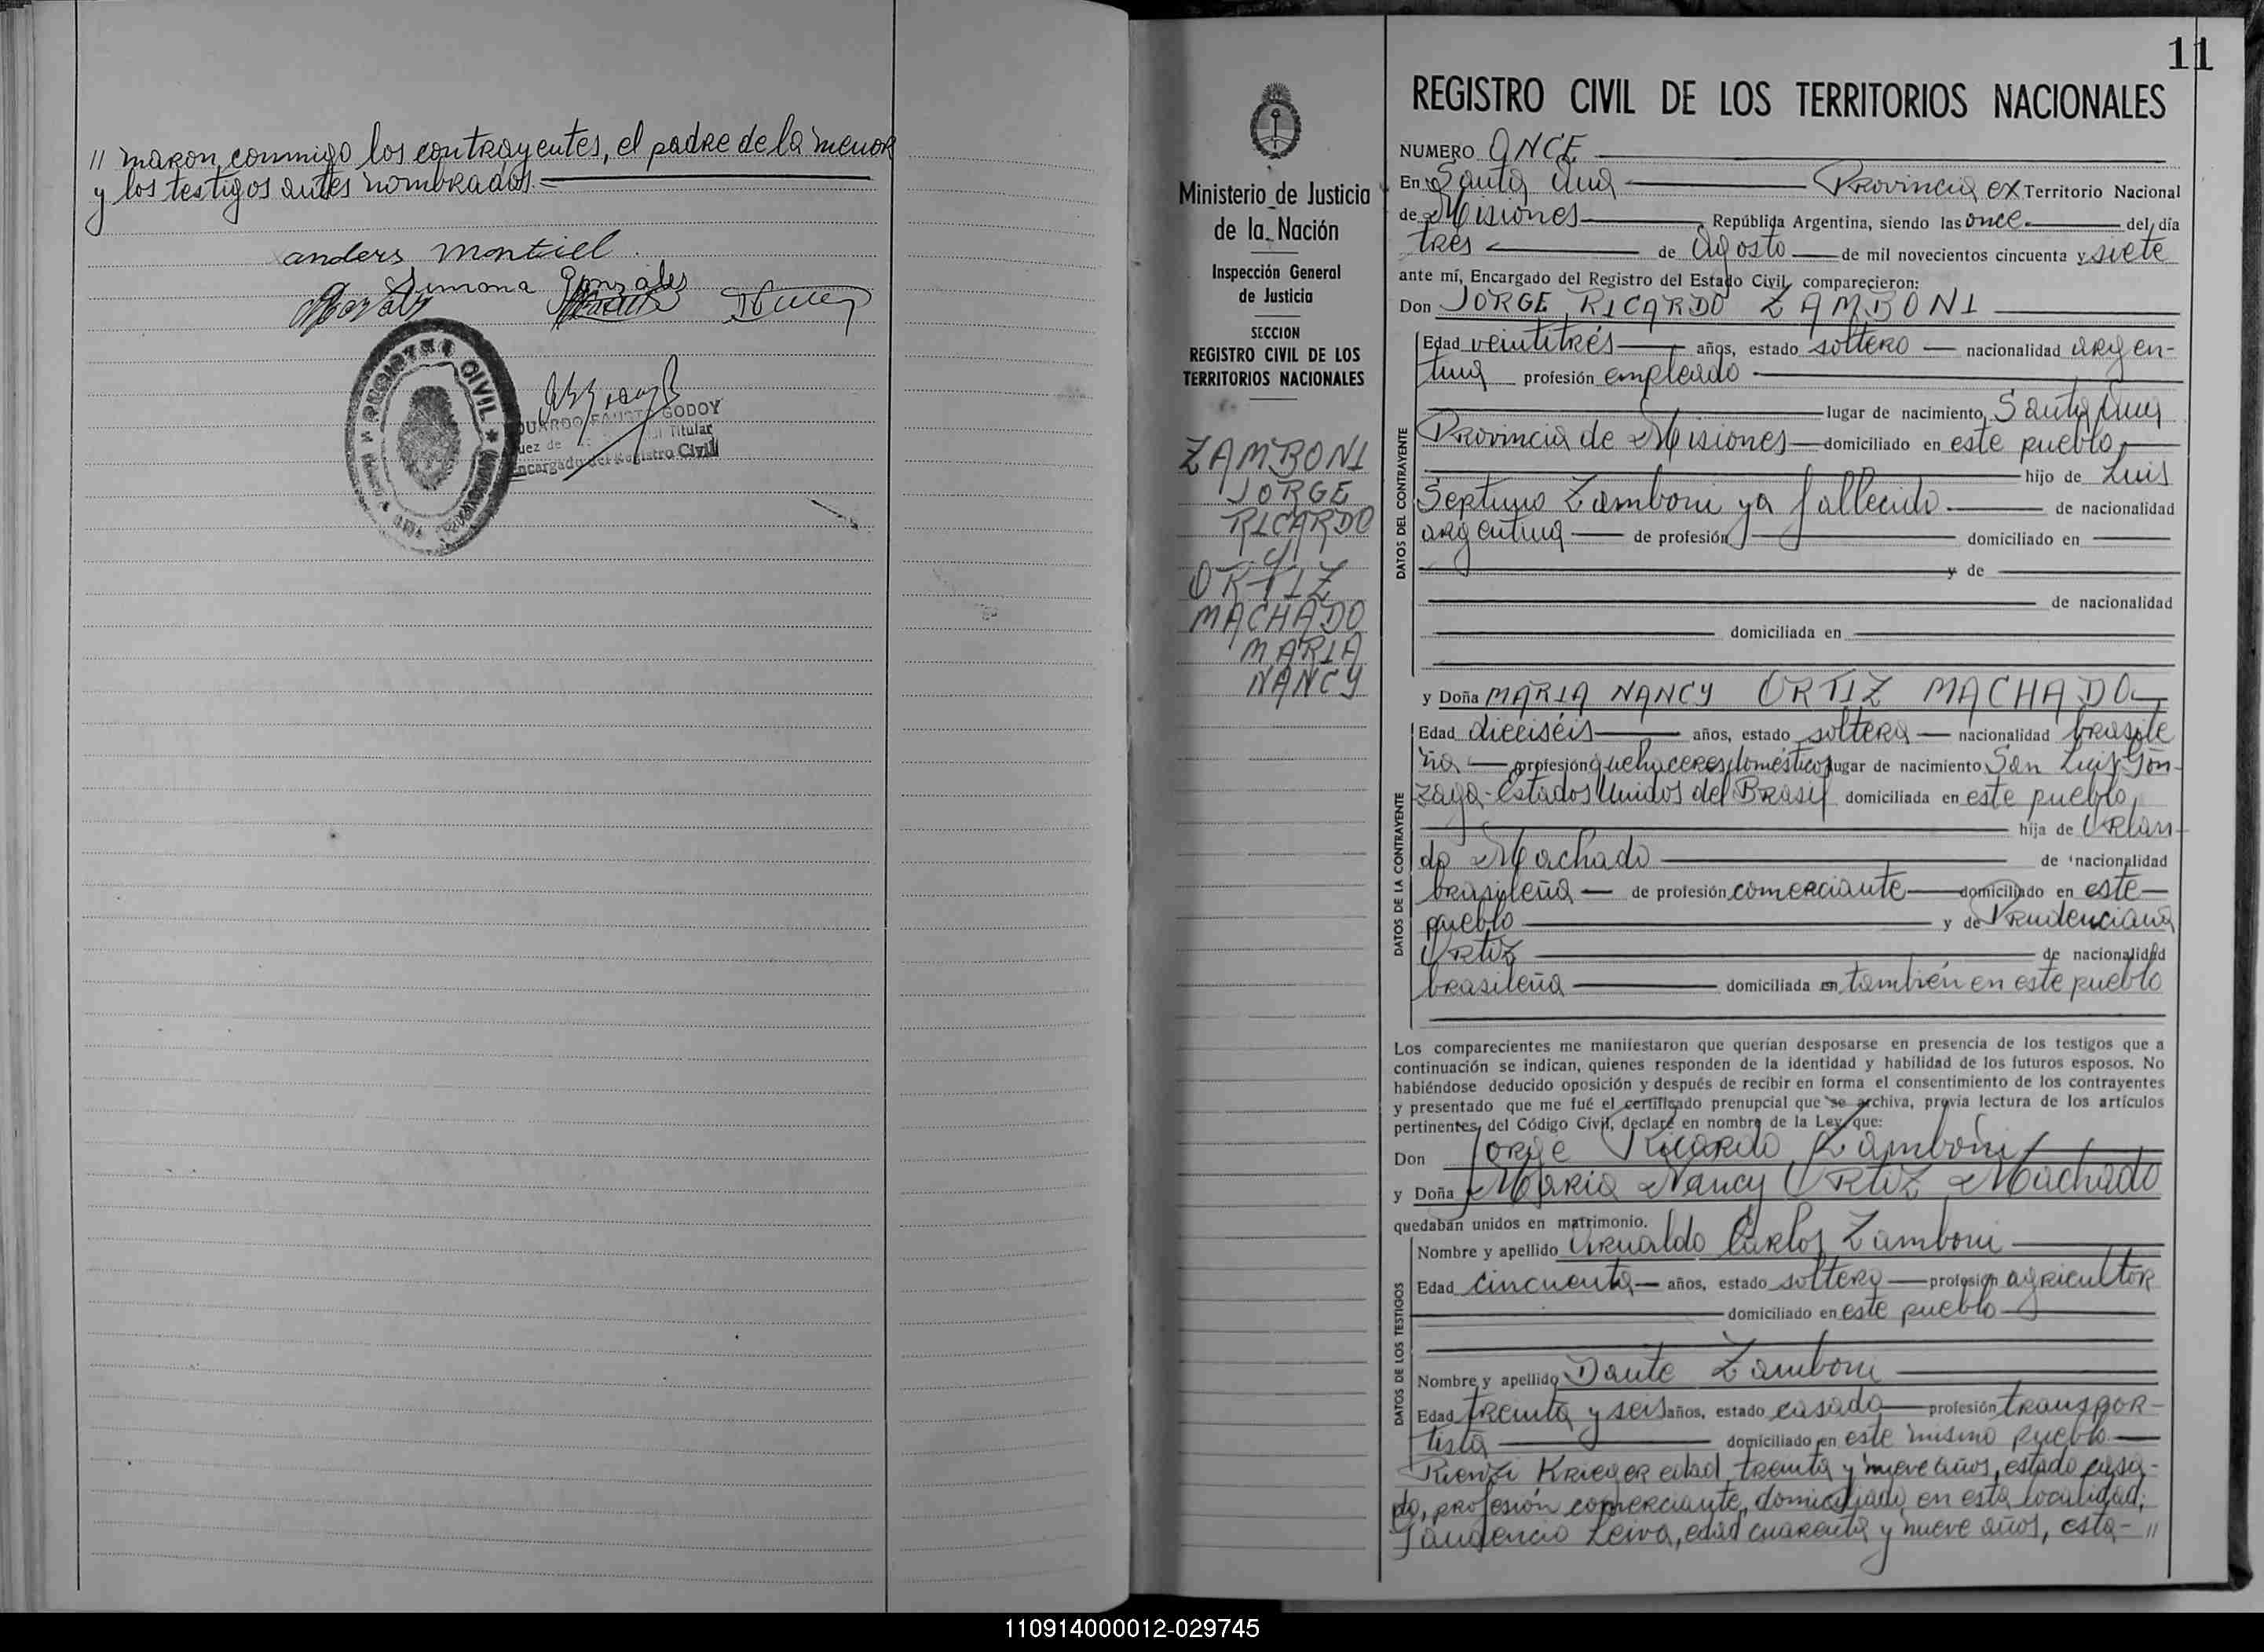 // maron conmigo los contrayentes, el padre de la menor
y los testigos antes nombrados.
anders montiel
Simona Gonzales
REGISTRO CIVIL
EDUARDO FAUSTO GODOY
Juez de Titular
Encargado del Registro Civil
11
Ministerio de Justicia
de la Nación
Inspección General
de Justicia
SECCION
REGISTRO CIVIL DE LOS
TERRITORIOS NACIONALES
ZAMBONI
JORGE
RICARDO
c/
ORTIZ
MACHADO
MARIA
NANCY
REGISTRO CIVIL DE LOS TERRITORIOS NACIONALES
NUMERO ONCE
En Santa Ana Provincia ex Territorio Nacional
de Misiones República Argentina, siendo las once del día
tres de Agosto de mil novecientos cincuenta y siete
ante mí, Encargado del Registro del Estado Civil, comparecieron:
Don JORGE RICARDO ZAMBONI
DATOS DEL CONTRAYENTE
Edad veintitrés años, estado soltero nacionalidad argen-
tina profesión empleado
lugar de nacimiento Santa Ana
Provincia de Misiones domiciliado en este pueblo,
hijo de Luis
Septimo Zamboni ya fallecido de nacionalidad
argentina de profesión domiciliado en
y de
de nacionalidad
domiciliada en
y Doña MARIA NANCY ORTIZ MACHADO
DATOS DE LA CONTRAYENTE
Edad dieciséis años, estado soltera nacionalidad brasile
ña profesión quehaceres domésticos lugar de nacimiento San Luis Gon-
zaga-Estados Unidos del Brasil domiciliada en este pueblo,
hija de Orlan-
do Machado de nacionalidad
brasileña de profesión comerciante domiciliado en este
pueblo y de Prudenciana
Ortiz de nacionalidad
brasileña domiciliada en también en este pueblo
Los comparecientes me manifestaron que querían desposarse en presencia de los testigos que a
continuación se indican, quienes responden de la identidad y habilidad de los futuros esposos. No
habiéndose deducido oposición y después de recibir en forma el consentimiento de los contrayentes
y presentado que me fué el certificado prenupcial que se archiva, previa lectura de los artículos
pertinentes, del Código Civil, declaré en nombre de la Ley, que:
Don Jorge Ricardo Zamboni
y Doña Maria Nancy Ortiz Machado
quedaban unidos en matrimonio.
DATOS DE LOS TESTIGOS
Nombre y apellido Arnaldo Carlos Zamboni
Edad cincuenta años, estado soltero profesión agricultor
domiciliado en este pueblo
Nombre y apellido Dante Zamboni
Edad treinta y seis años, estado casado profesión transpor-
tista domiciliado en este mismo pueblo
Rienzi Krieger edad treinta y nueve años, estado casa-
do, profesión comerciante, domiciliado en esta localidad;
Gaudencio Leiva, edad cuarenta y nueve años, esta- //
110914000012-029745